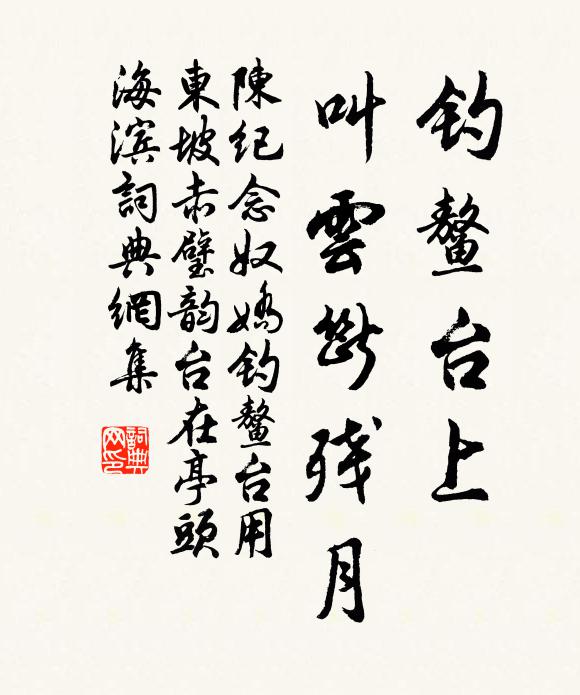 钓鳌台上
叫雲斷残月
陳纪念奴嬌钓鳌台用
東坡赤壁韵台在亭頭
海滨詞典網集
詞典网印